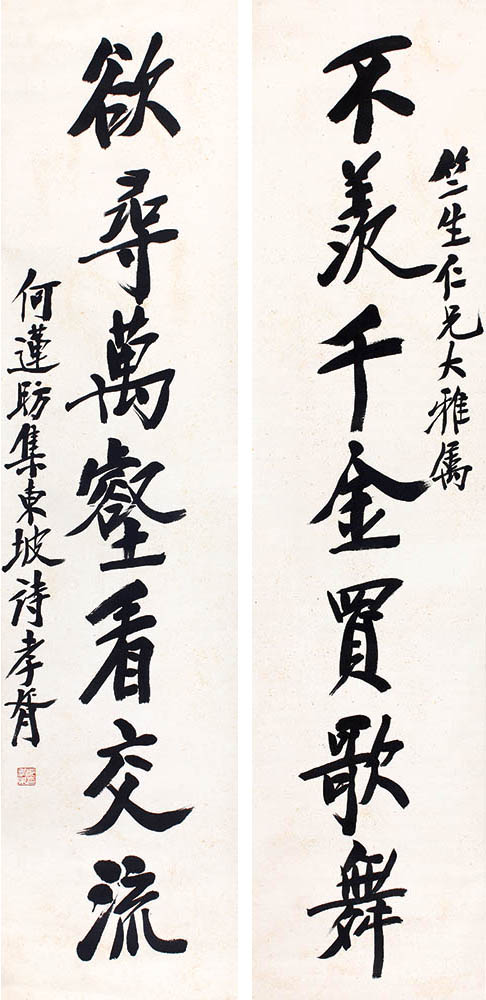 竺生仁兄大雅属
不羡千金買歌舞
欲尋萬壑看交流
何蓮舫集東坡詩孝胥